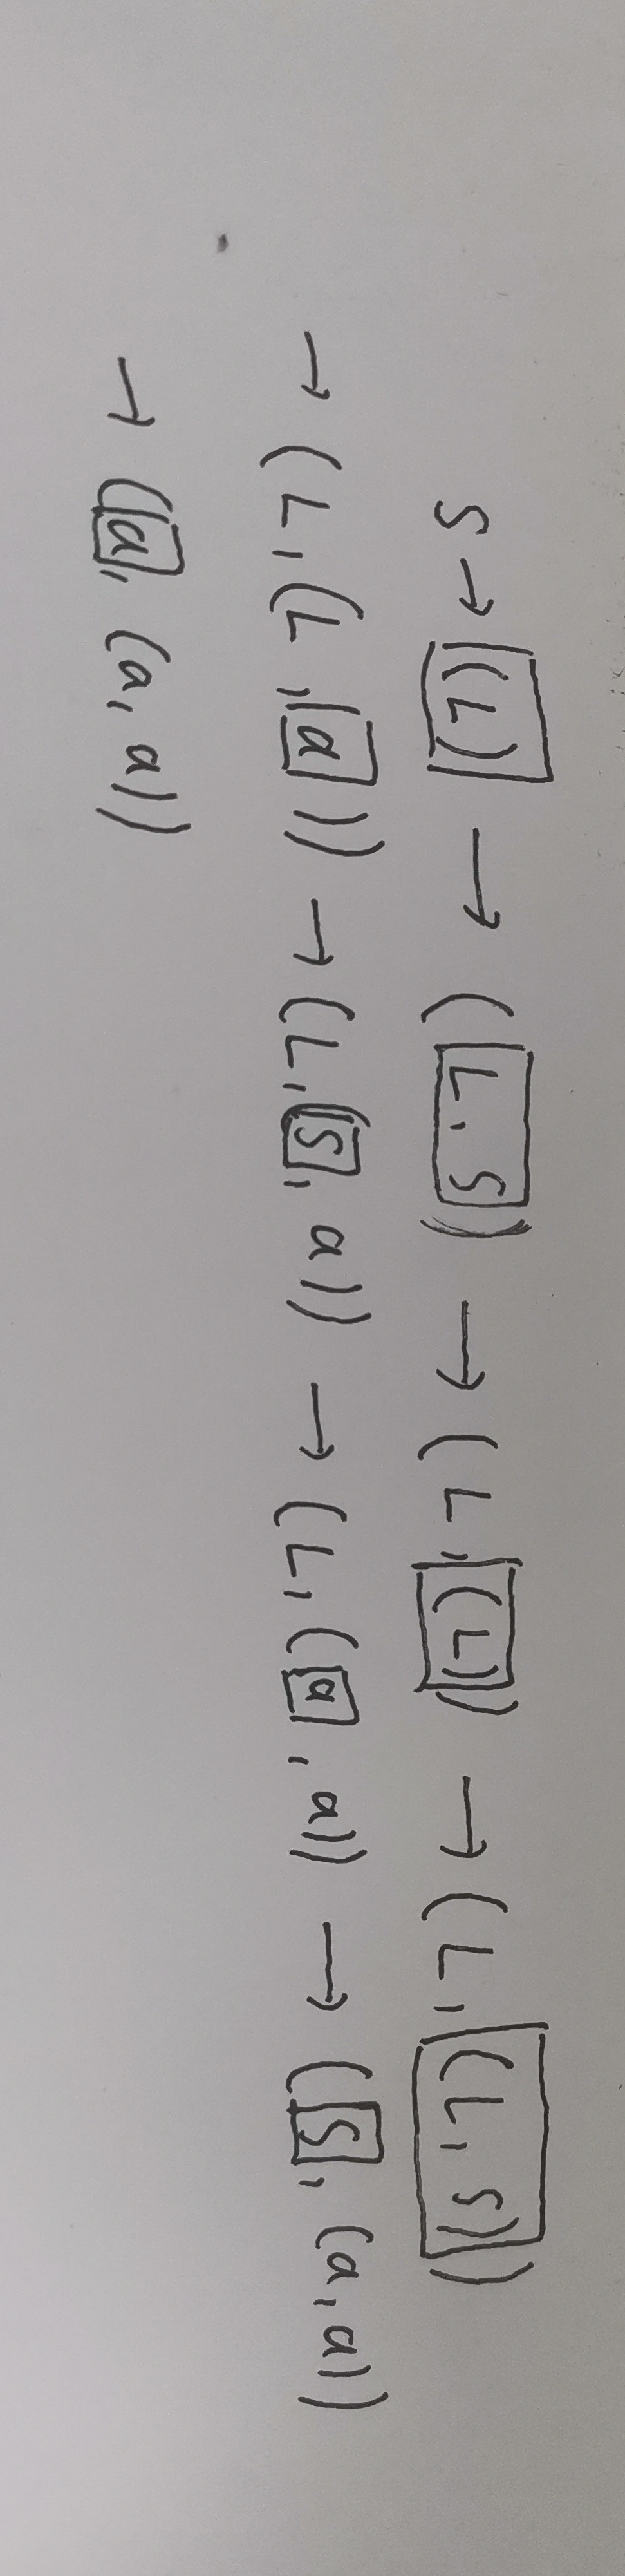 S → (L) → (L, S) → (L, (L)) → (L, (L, S))
→ (L, (L, a)) → (L, (S, a)) → (L, (a, a)) → (S, (a, a))
→ (a, (a, a))